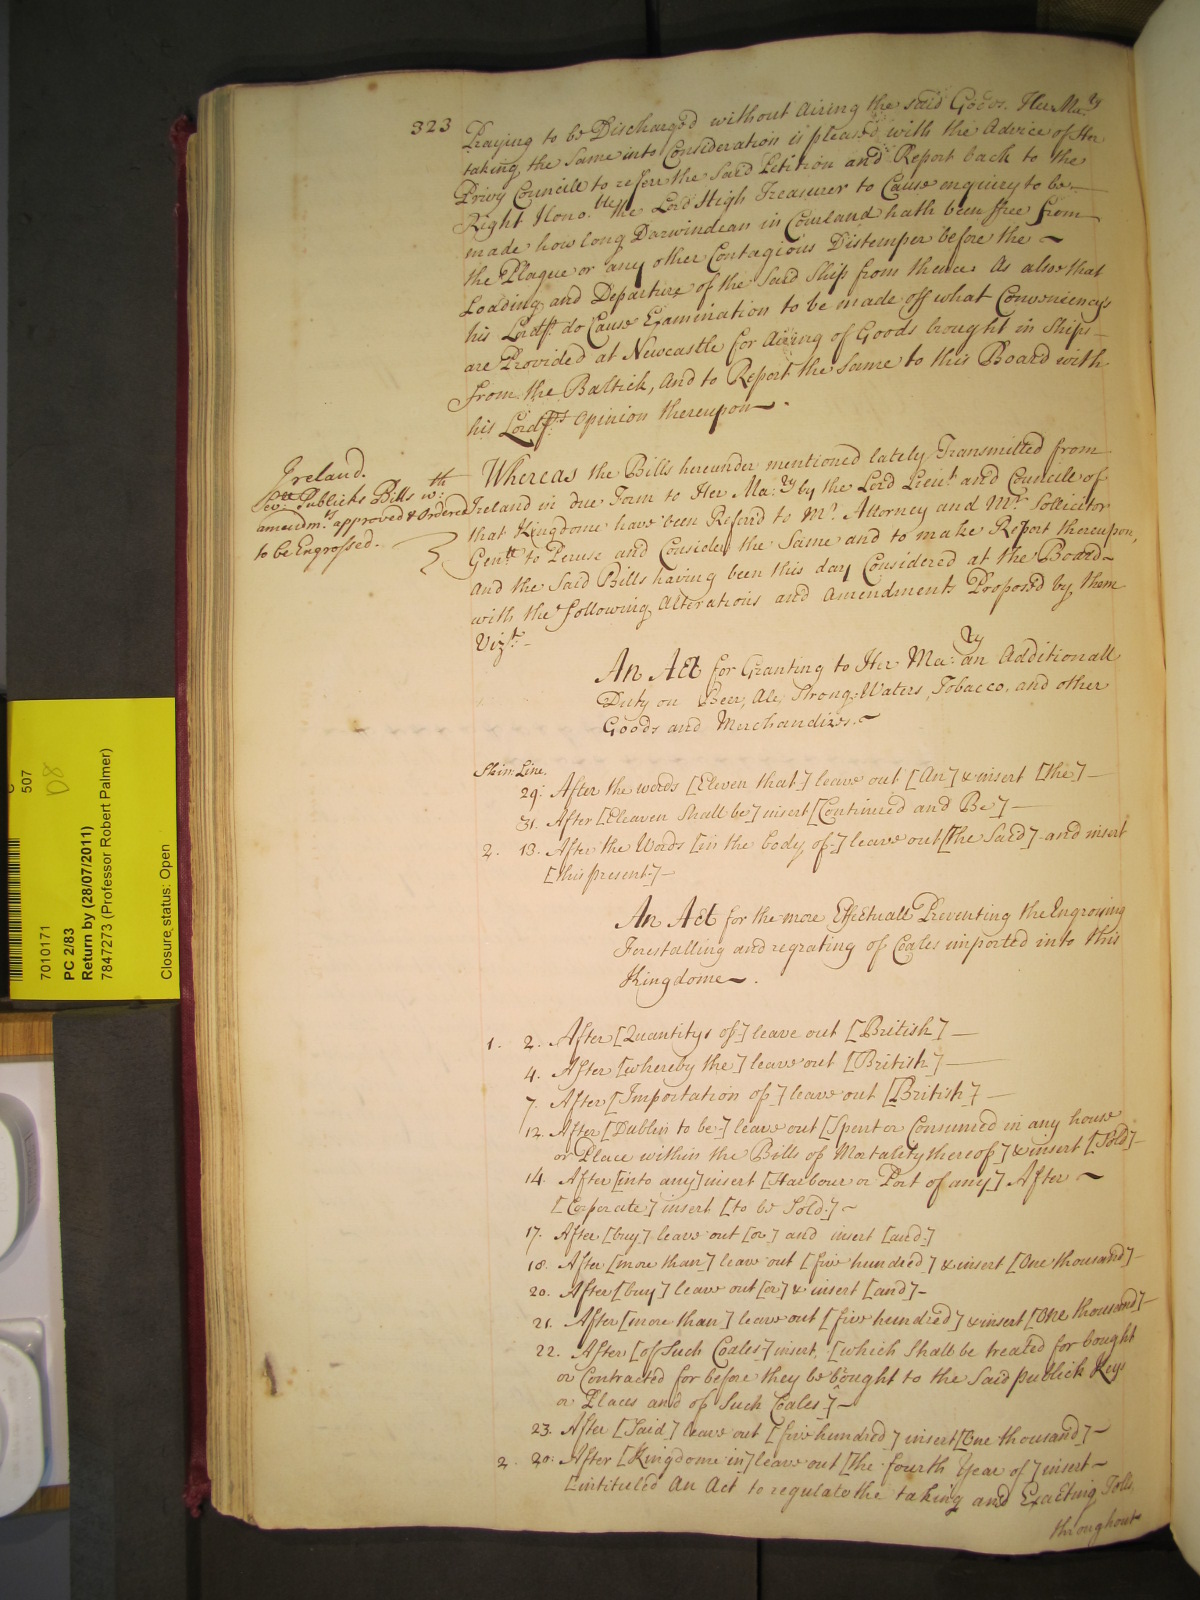 323
Praying to be Discharged without Airing the said Goods. Her Ma:ty
taking the Same into Consideration is pleased with the Advice of Her
Privy Councill to referr the Said Petition and Report back to the
Right Hono:ble the Lord High Treasurer to Cause enquiry to be
made how long Darwindean in Courland hath been ffree from
the Plague or any other Contagious Distemper before the ~
Loading and Departure of the Said Ship from thence. As also that
his Lordp. do Cause Examination to be made off what Conveniencys
are Provided at Newcastle for Airing of Goods brought in Ships
From the Baltick, And to Report the Same to this Board with
his Lordps. Opinion thereupon.
Ireland.
Publicke Bills wth:
amendmts. approved & Ordered
to be Engrossed.
Whereas the Bills hereunder mentioned lately Transmitted from
Ireland in due Form to Her Ma:ty by the Lord Lieut. and Councill of
that Kingdome have been Referd to Mr. Attorney and Mr. Sollicitor
Genll. to Peruse and Consider the Same and to make Report thereupon,
And the Said Bills having been this day Considered at the Board
with the following Alterations and Amendments Proposed by them
Vizt.
An Act for Granting to Her Ma:ty an Additionall
Duty on Beer, Ale, Strong-Waters, Tobacco, and other
Goods and Merchandizes. ~
Skin: Line.
29: After the words [Eleven that] leave out [An] & insert [the]
31. After [Eleaven Shall be] insert [Continued and Be]
2. 13. After the Words [in the body of] leave out [The Said] and insert
[this present]
An Act for the more Effectuall Preventing the Engrossing
Forestalling and regrating of Coales imported into this
Kingdome.
1. 2. After [Quantitys of] leave out [British]
4. After [whereby the] leave out [British]
7. After [Importation of] leave out [British]
12. After [Dublin to be] leave out [Spent or Consumed in any house
or Place within the Bills of Mortality thereof] & insert [Sold]
14. After [into any] insert [Harbour or Port of any] After ~
[Corporate] insert [to be Sold.] ~
17. After [buy] leave out [or] and insert [and.]
18. After [more than] leave out [five hundred] & insert [One thousand]
20. After [buy] leave out [or] & insert [and]
21. After [more than] leave out [five hundred] & insert [One thousand]
22. After [of Such Coales] insert, [which Shall be treated for bought
or Contracted for before they be bought to the Said publick Keys
or Places and of Such Coales]
23. After [Said] leave out [five hundred] insert [One thousand]
2. 20: After [Kingdome in] leave out [the fourth Year of] insert
[intituled An Act to regulate the taking and Exacting Tolls
throughout
507
D8
7010171
PC 2/83
Return by (28/07/2011)
7847273 (Professor Robert Palmer)
Closure status: Open